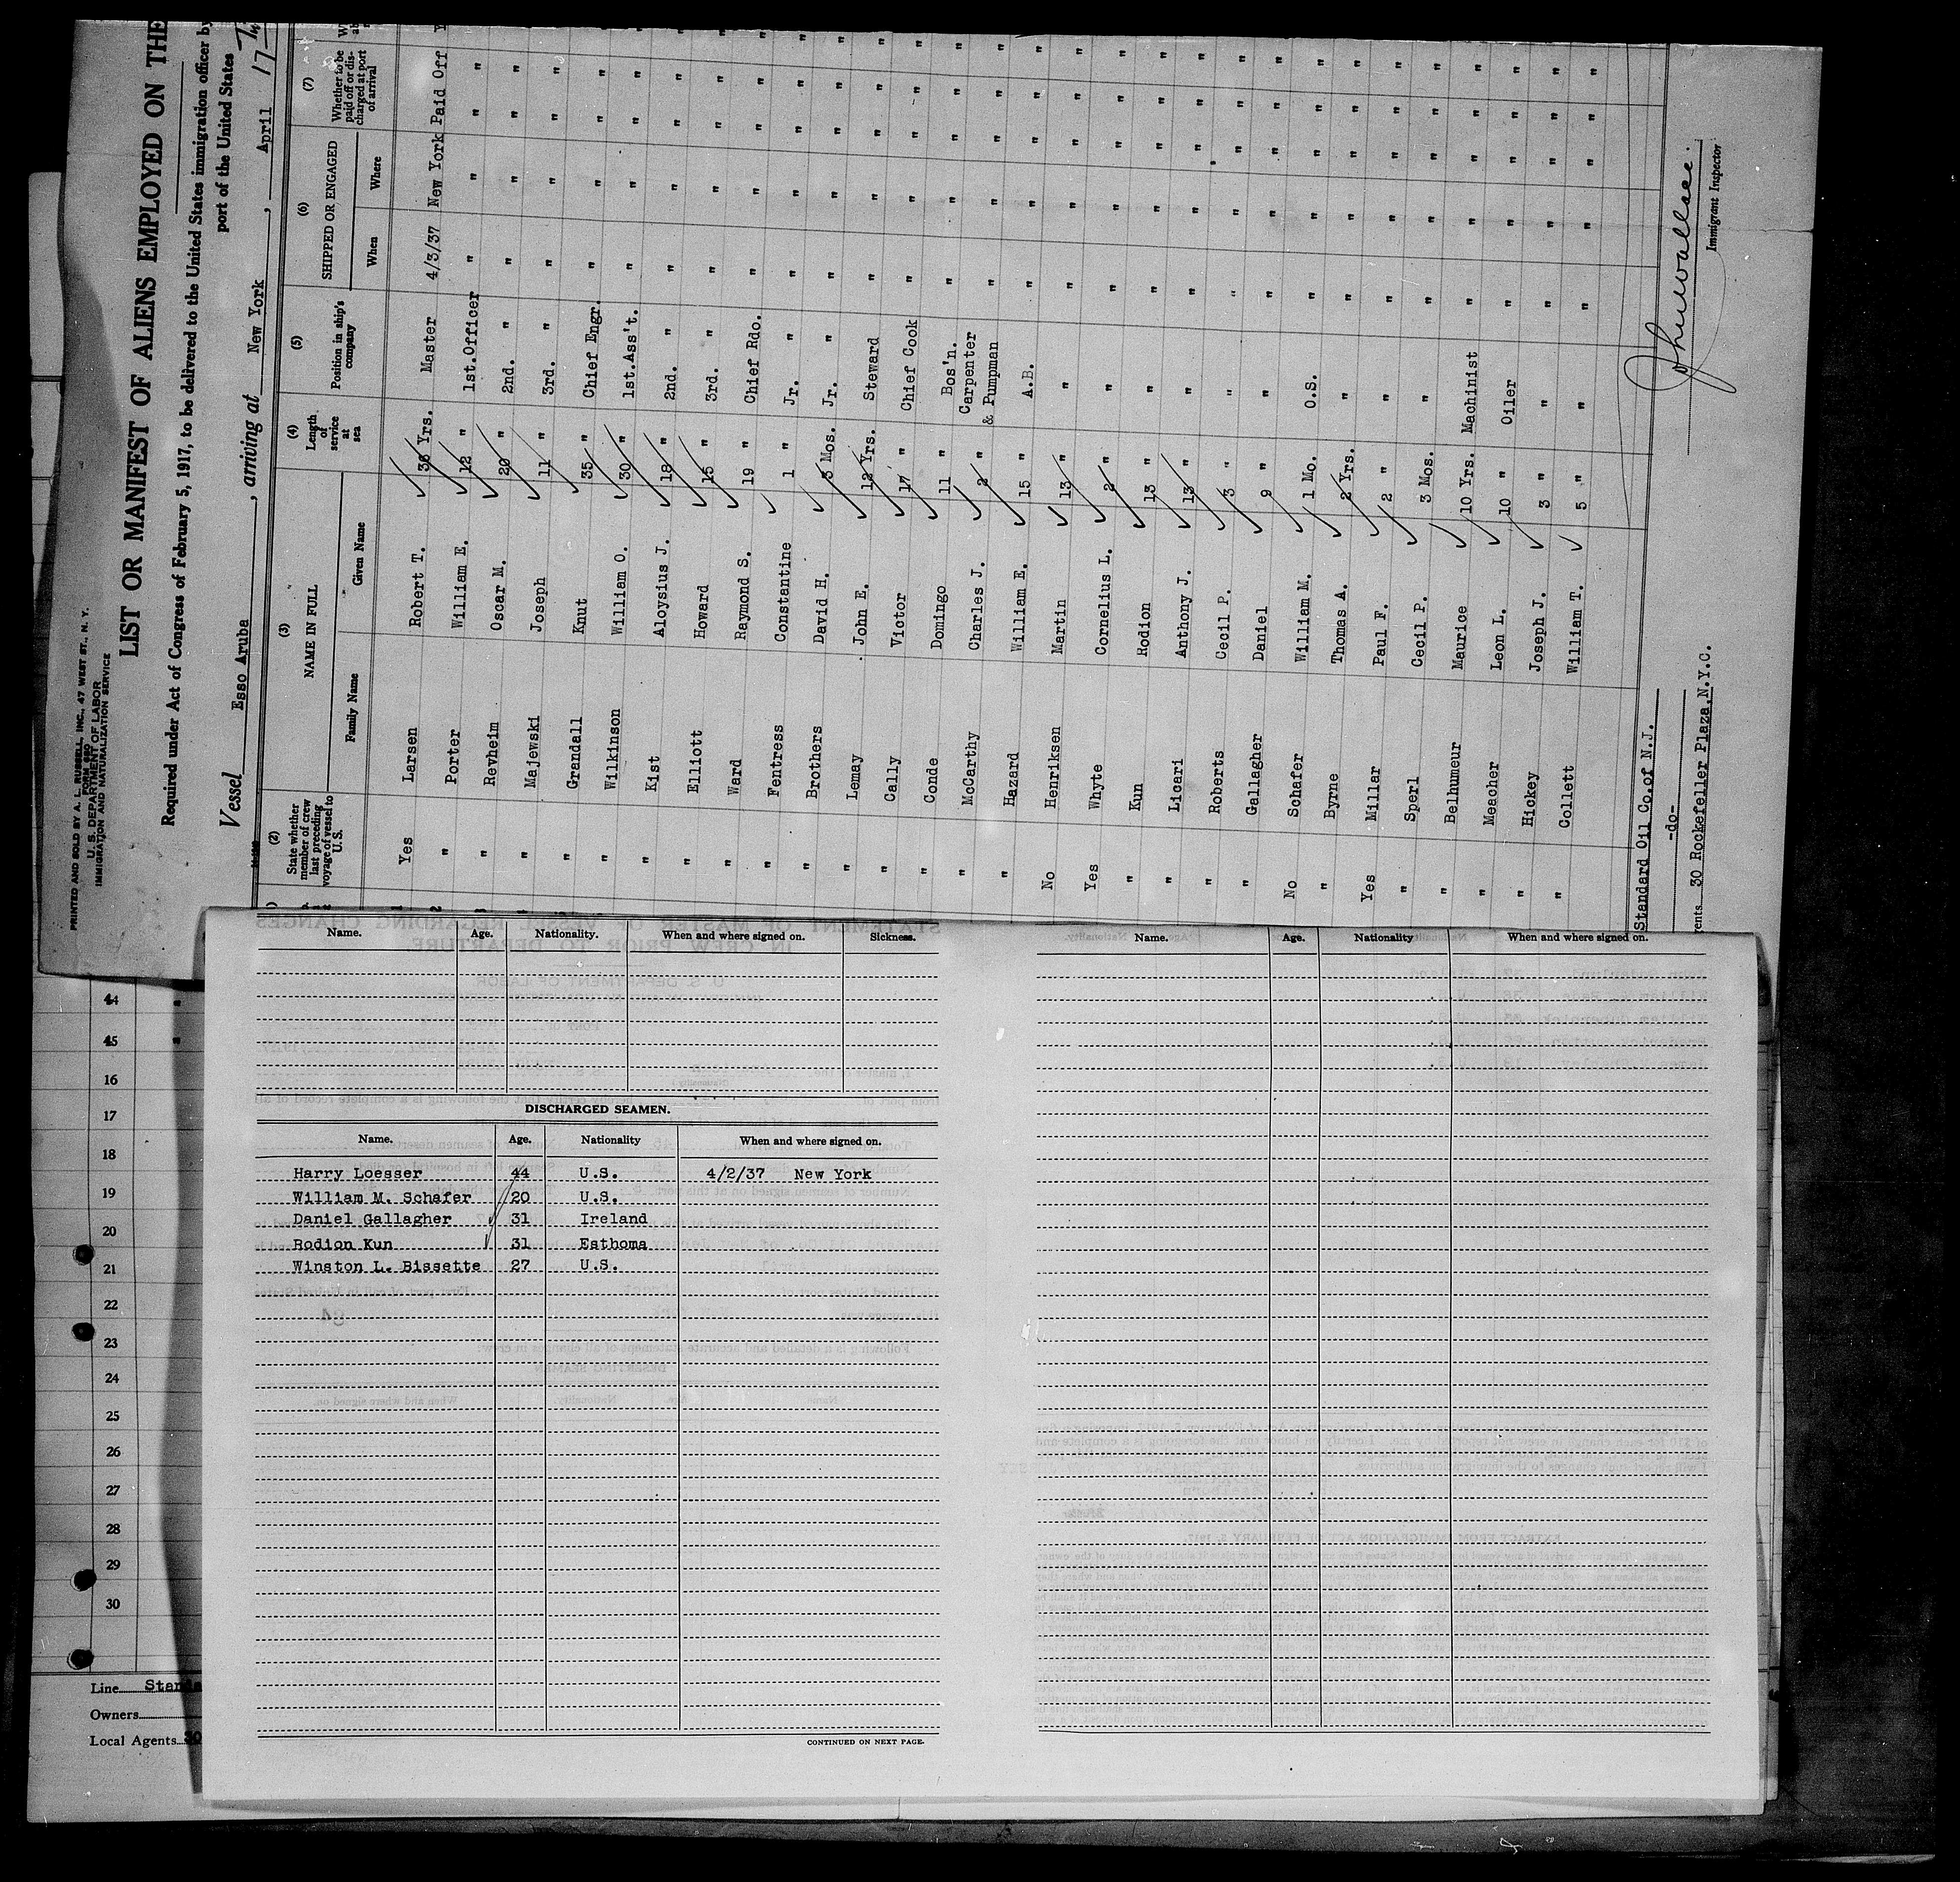 PRINTED AND SOLD BY A. L. RUSSELL, INC., 47 WEST ST., N. Y.
FORM 680
U. S. DEPARTMENT OF LABOR
IMMIGRATION AND NATURALIZATION SERVICE
LIST OR MANIFEST OF ALIENS EMPLOYED ON THE
Required under Act of Congress of February 5, 1917, to be delivered to the United States immigration officer by
port of the United States
Vessel Esso Aruba, arriving at New York, April 17
(2) (3) (4) (5) (6) (7)
State whether member of crew last preceding voyage of vessel to U.S.
NAME IN FULL
Family Name Given Name
Length of service at sea
Position in ship's company
SHIPPED OR ENGAGED
When Where
Whether to be paid off or discharged at port of arrival
Yes Larsen Robert T. 36 Yrs. Master 4/3/37 New York Paid Off
" Porter William E. 12 " 1st.Officer " " "
" Revheim Oscar M. 20 " 2nd. " " " "
" Majewski Joseph 11 " 3rd. " " " "
" Grandall Knut 35 " Chief Engr. " " "
" Wilkinson William O. 30 " 1st.Ass't. " " "
" Kist Aloysius J. 18 " 2nd. " " " "
" Elliott Howard 15 " 3rd. " " " "
" Ward Raymond S. 19 " Chief Rdo. " " "
" Fentress Constantine 1 " Jr. " " " "
" Brothers David H. 3 Mos. Jr. " " " "
" Lemay John E. 12 Yrs. Steward " " "
" Cally Victor 17 " Chief Cook " " "
" Conde Domingo 11 " Bos'n. " " "
" McCarthy Charles J. 2 " Carpenter & Pumpman " " "
" Hazard William E. 15 " A.B. " " "
No Henriksen Martin 13 " " " " "
Yes Whyte Cornelius L. 2 " " " " "
" Kun Rodion 13 " " " " "
" Licari Anthony J. 13 " " " " "
" Roberts Cecil P. 3 " " " " "
" Gallagher Daniel 9 " " " " "
No Schafer William M. 1 Mo. O.S. " " "
" Byrne Thomas A. 2 Yrs. " " " "
Yes Millar Paul F. 2 " " " " "
" Sperl Cecil P. 3 Mos. " " " "
" Belhumeur Maurice 10 Yrs. Machinist " " "
" Meacher Leon L. 10 " Oiler " " "
" Hickey Joseph J. 3 " " " " "
" Collett William T. 5 " " " " "
Standard Oil Co.of N.J.
-do-
30 Rockefeller Plaza,N.Y.C.
Immigrant Inspector
Name. Age. Nationality. When and where signed on. Sickness.
DISCHARGED SEAMEN.
Name. Age. Nationality When and where signed on.
Harry Loesser 44 U.S. 4/2/37 New York
William M. Schafer 20 U.S.
Daniel Gallagher 31 Ireland
Rodion Kun 31 Esthoma
Winston L. Bissette 27 U.S.
CONTINUED ON NEXT PAGE.
Name. Age. Nationality When and where signed on.
16
17
18
19
20
21
22
23
24
25
26
27
28
29
30
Line
Owners
Local Agents